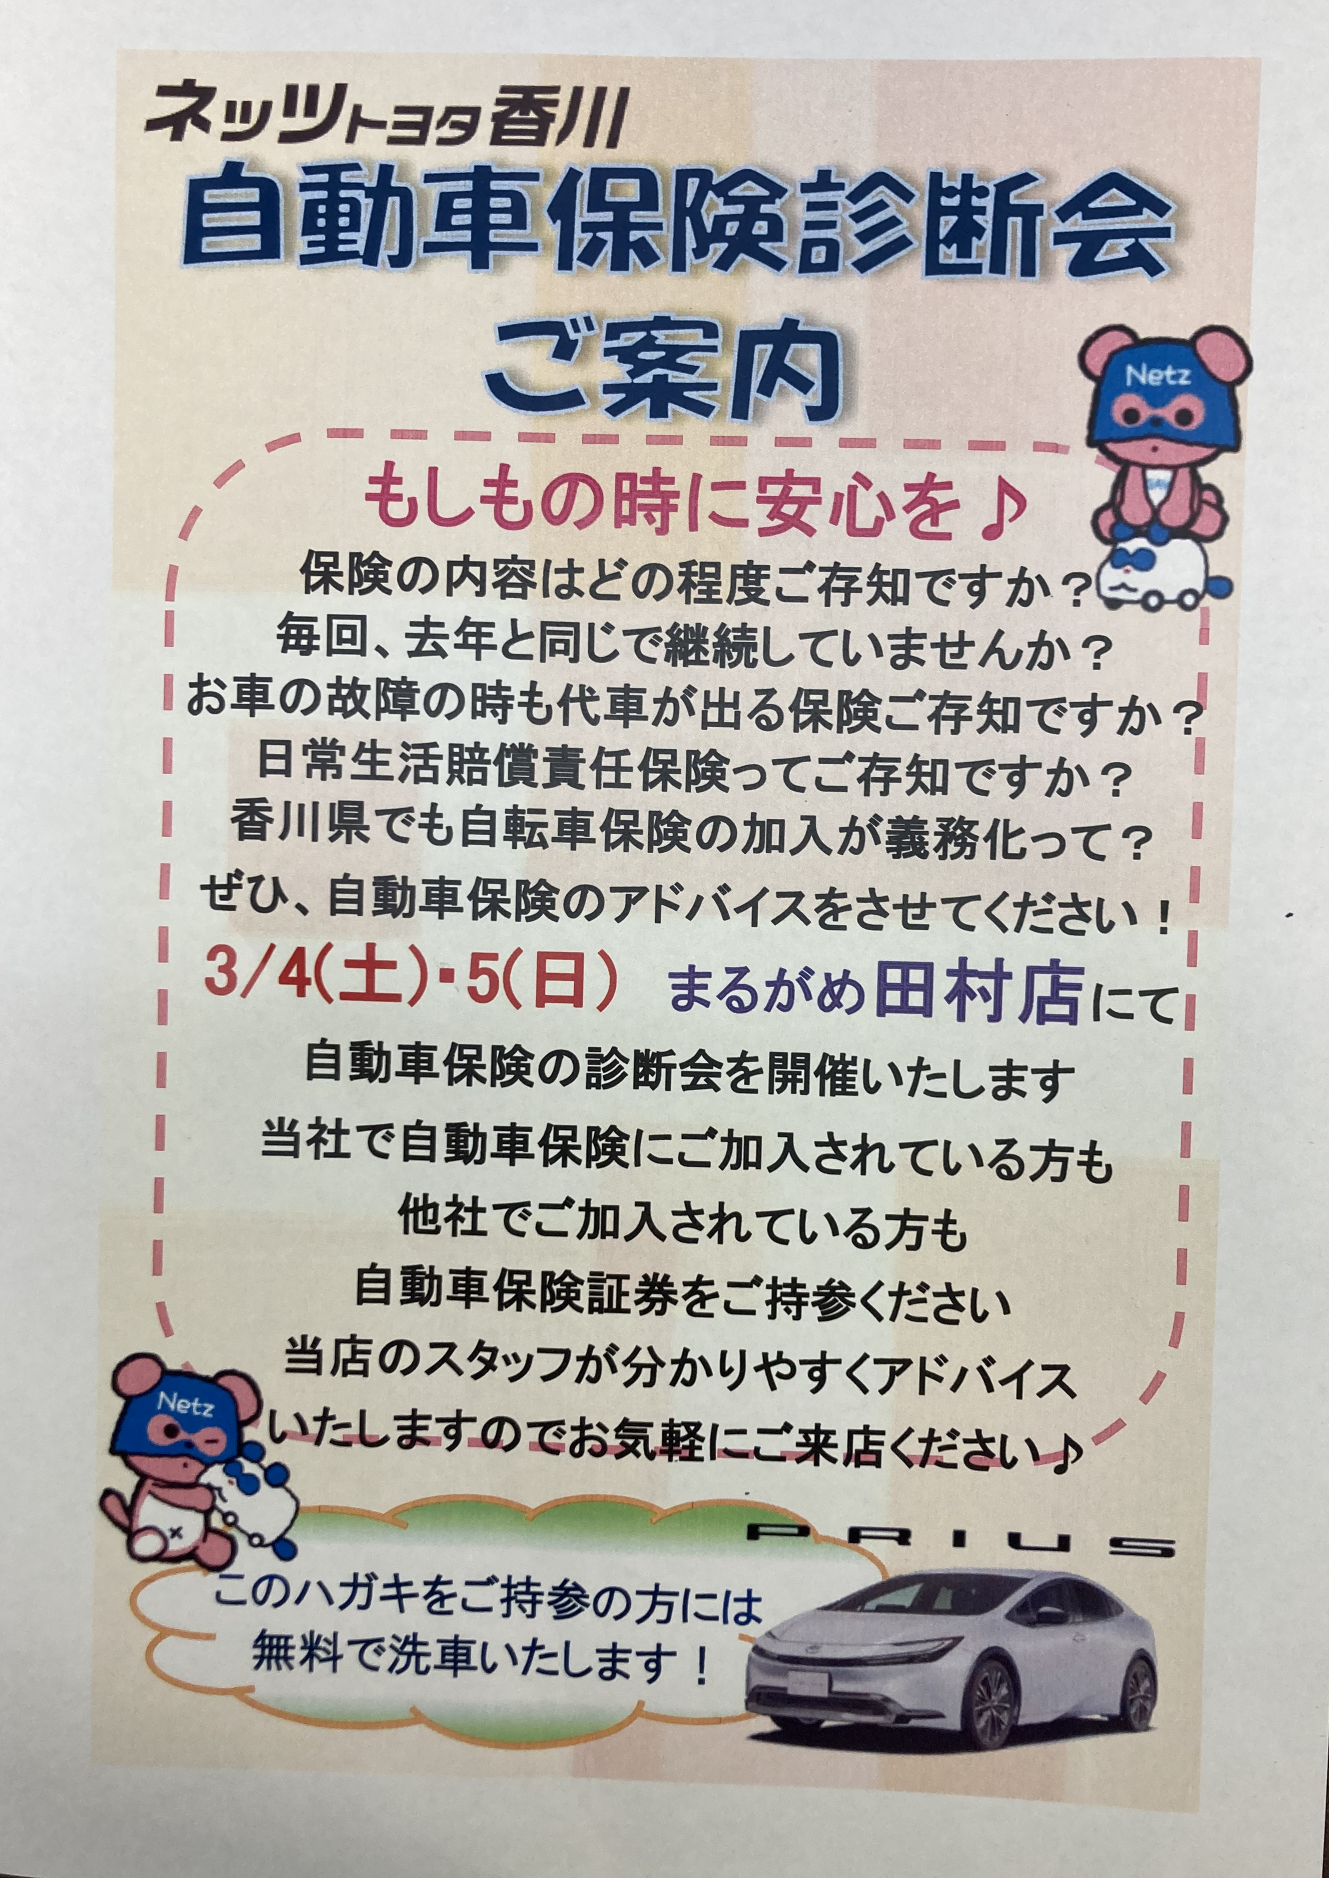 ネッツトヨタ香川
自動車保険診断会
ご案内
Netz
もしもの時に安心を♪
保険の内容はどの程度ご存知ですか？
毎回、去年と同じで継続していませんか？
お車の故障の時も代車が出る保険ご存知ですか？
日常生活賠償責任保険ってご存知ですか？
香川県でも自転車保険の加入が義務化って？
ぜひ、自動車保険のアドバイスをさせてください！
3/4(土)・5(日) まるがめ田村店にて
自動車保険の診断会を開催いたします
当社で自動車保険にご加入されている方も
他社でご加入されている方も
自動車保険証券をご持参ください
当店のスタッフが分かりやすくアドバイス
Netz
いたしますのでお気軽にご来店ください♪
PRIUS
このハガキをご持参の方には
無料で洗車いたします！